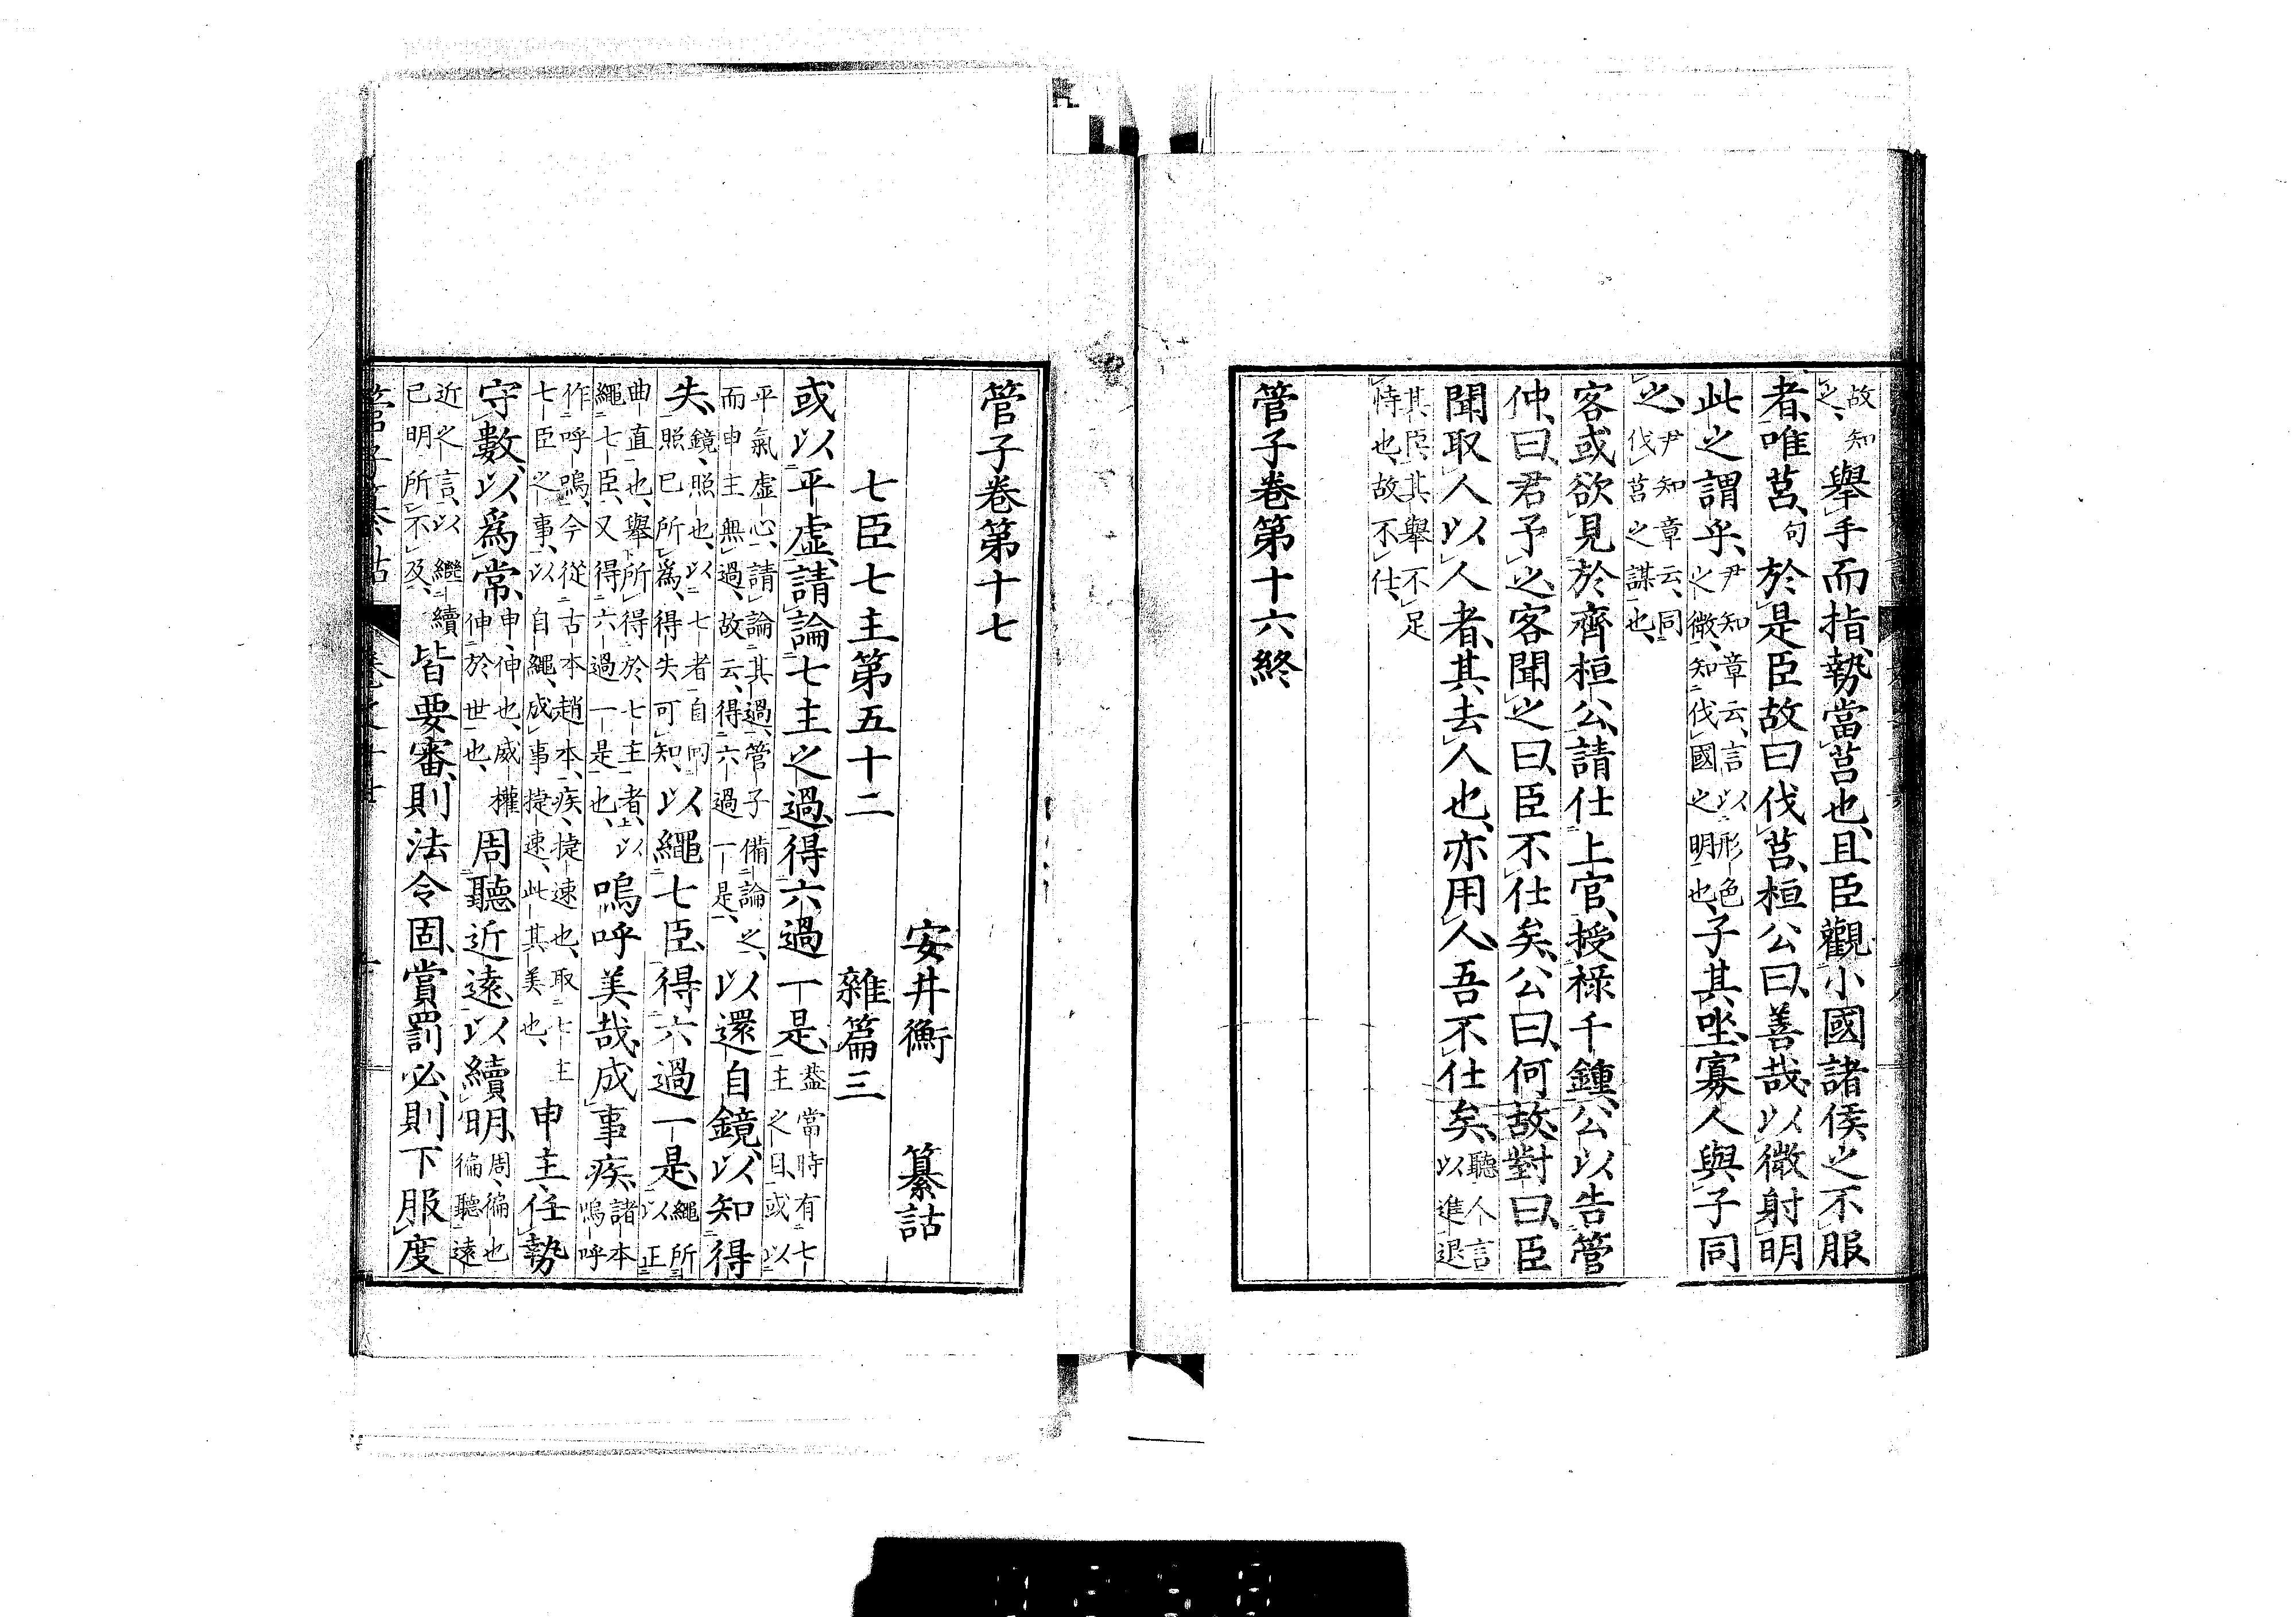 故知
之、舉手而指、勢當莒也、且臣觀小國諸侯之不服
者、唯莒、句於是臣故曰伐莒、桓公曰、善哉、以微射明
此之謂乎、尹知章云、言以形色之微、知伐國之明也、子其坐、寡人與子同
之、尹知章云、同伐莒之謀也、
客或欲見於齊桓公、請仕上官、授祿千鍾、公以告管
仲、曰、君予之、客聞之曰、臣不仕矣、公曰、何故、對曰、臣
聞取人以人者、其去人也、亦用人、吾不仕矣、聽人言以進退
其臣、其舉不足恃也、故不仕、
管子卷第十六終
管子卷第十七
安井衡 纂詁
七臣七主第五十二 雜篇三
或以平虛請論七主之過、得六過一是、蓋當時有七主之目、或以
平氣虛心、請論其過、管子備論之、而申主無過、故云、得六過一是、以還自鏡、以知得
失、鏡、照也、以七者自照已所爲、得失可知、以繩七臣、得六過一是、繩所以正
曲直也、舉所得於七主者、以繩七臣、又得六過一是也、嗚呼美哉、成事疾、諸本嗚呼
作呼嗚、今從古本趙本、疾、捷速也、取七主七臣之事、以自繩、成事捷速、此其美也、申主、任勢
守數以爲常、申、伸也、威權伸於世也、周聽近遠以續明、周、徧也徧聽遠
近之言、以繼續已明所不及、皆要審、則法令固、賞罰必、則下服度